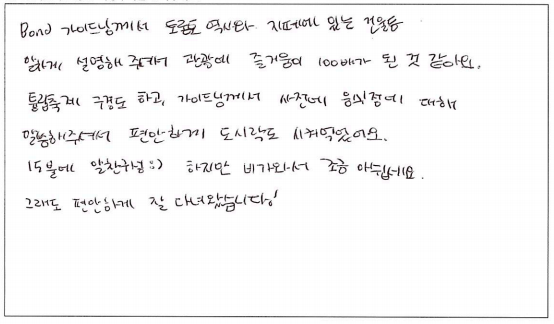 Bond 가이드님께서 도쿄도 역사와 지폐에 있는 건물등
알차게 설명해 주셔서 관광에 즐거움이 100배가 된 것 같아요.
튤립축제 구경도 하고, 가이드님께서 사전에 음식점에 대해
말씀해주셔서 편안하게 도시락도 시켜먹었어요.
15불에 알찬구성 :) 하지만 비가와서 조금 아쉽네요.
그래도 편안하게 잘 다녀왔습니다!